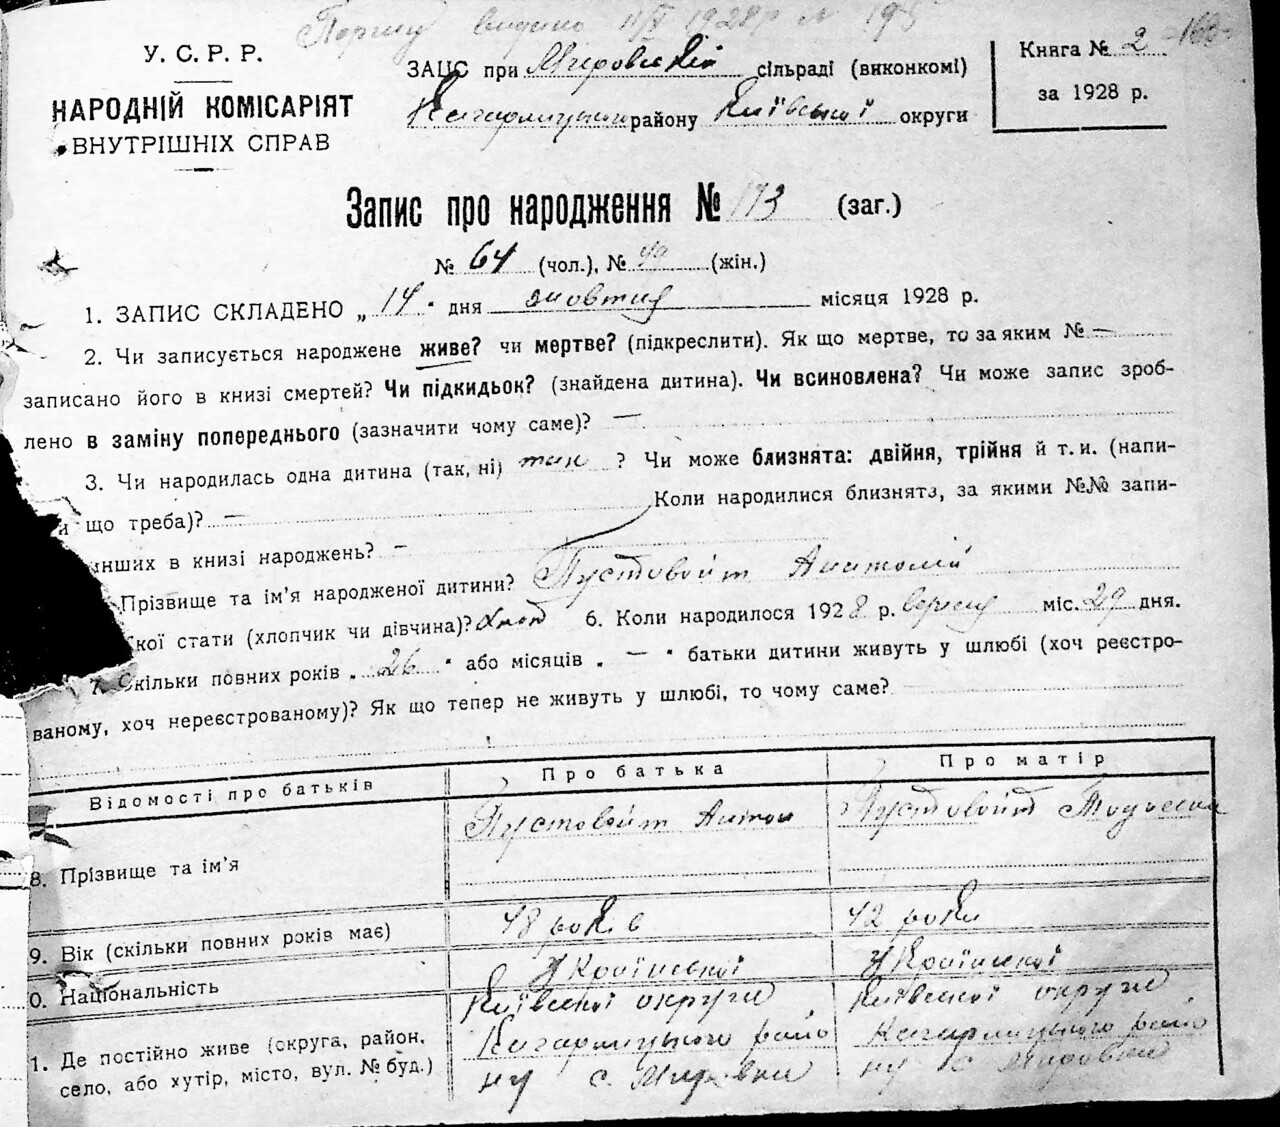 Першу видано 11/X 1928 р № 195
-163-
У. С. Р. Р.
НАРОДНІЙ КОМІСАРІЯТ
ВНУТРІШНІХ СПРАВ
ЗАЦС при Мировській сільраді (виконкомі)
Кагарлицького району Київської округи
Книга № 2
за 1928 р.
Запис про народження № 173 (заг.)
№ 64 (чол.), № 49 (жін.)
1. ЗАПИС СКЛАДЕНО „ 14 " дня жовтня місяця 1928 р.
2. Чи записується народжене живе? чи мертве? (підкреслити). Як що мертве, то за яким № —
записано його в книзі смертей? Чи підкидьок? (знайдена дитина). Чи всиновлена? Чи може запис зроб-
лено в заміну попереднього (зазначити чому саме)? —
3. Чи народилась одна дитина (так, ні) так ? Чи може близнята: двійня, трійня й т. и. (напи-
и що треба)? — Коли народилися близнята, за якими №№ запи-
инших в книзі народжень? —
Прізвище та ім'я народженої дитини? Пустовойт Анатолій
кої стати (хлопчик чи дівчина)? хлоп 6. Коли народилося 1928 р. вересня міс. 29 дня.
7. Скільки повних років „ 26 " або місяців „ — " батьки дитини живуть у шлюбі (хоч реєстро-
ваному, хоч нереєстрованому)? Як що тепер не живуть у шлюбі, то чому саме?
Відомості про батьків Про батька Про матір
8. Прізвище та ім'я Пустовойт Антон Пустовойт
9. Вік (скільки повних років має) 48 років 42 роки
0. Національність Української Української
1. Де постійно живе (округа, район,
село, або хутір, місто, вул. № буд.)
Київської округи
Кагарлицького райо
ну с. Мировки
Київської округи
Кагарлицького райо
ну с. Мировки